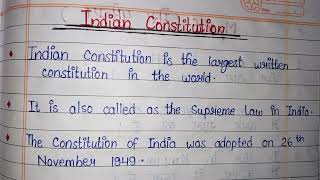 Indian Constitution
Indian Constitution is the largest written
constitution in the world.
It is also called as the Supreme law in India.
The Constitution of India was adopted on 26th
November 1949.